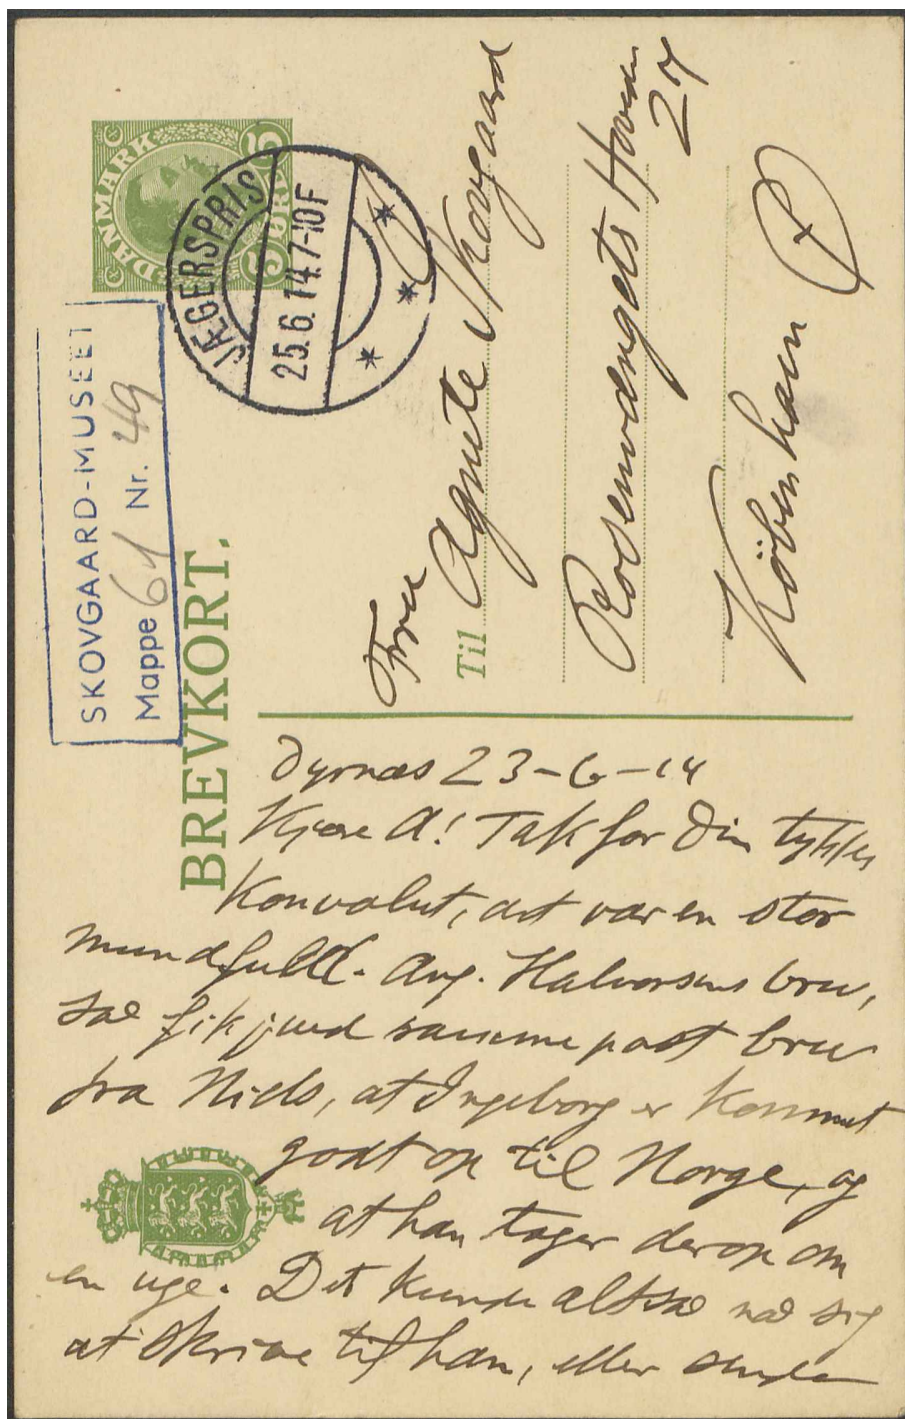 DANMARK
5 ØRE 5
JÆGERSPRIS
25.6.14.7-10F
SKOVGAARD-MUSEET
Mappe 61 Nr. 49
BREVKORT.
Fru
Til Agnete Skovgaard
Rosenvængets Hoved
27
København Ø
Dyrnæs 23-6-14
Kjære A! Tak for Din tykke
Konvolut, det var en stor
mundfuld. Ang. Halvorsens brev,
saa fik jeg med samme post brev
fra Niels, at Ingeborg er kommet
godt op til Norge, og
at han tager derop om
en uge. Det kunde altsaa naa sig
at skrive til ham, eller sende